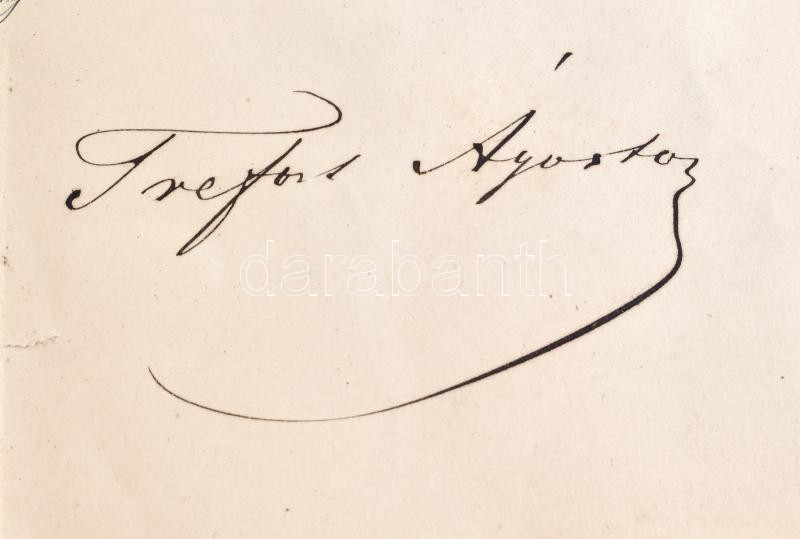 Trefort Ágoston
darabanth